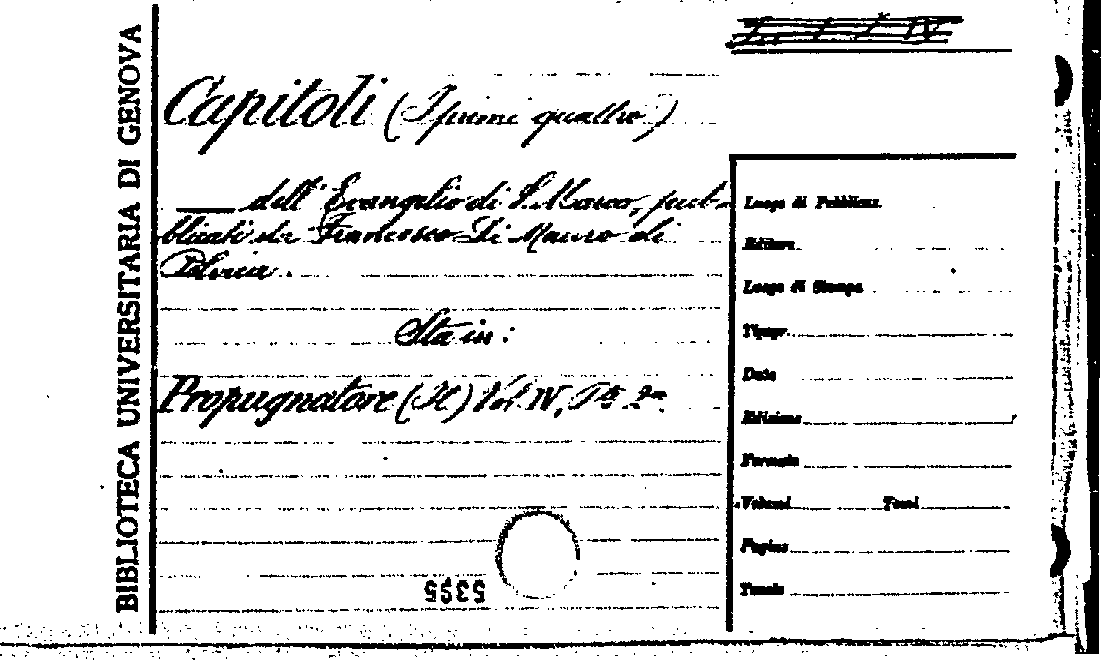 BIBLIOTECA UNIVERSITARIA DI GENOVA
Capitoli (I primi quattro)
dell' Evangelio di S. Marco, pub-
blicati da Francesco Di Mauro di
Polvica.
Sta in:
Propugnatore (Il) Vol. IV, Pe 2a.
Luogo di Pubblicaz.
Editore
Luogo di Stampa
Tipogr.
Data
Edizione
Formato
Volumi Tomi
Pagine
Tavole
5395